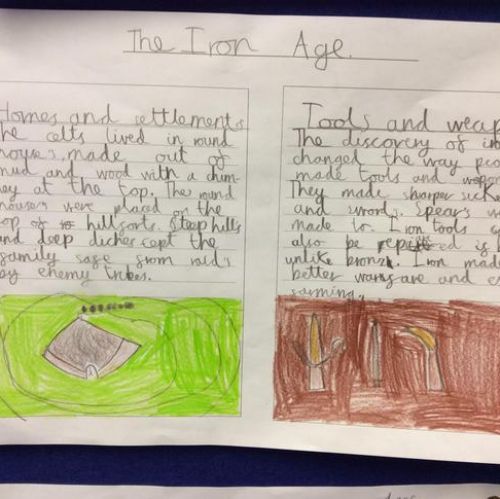 The Iron Age.
Homes and settlements
The celts lived in round
houses, made out of
mud and wood with a chim-
ney at the top. The round
houses were placed on the
top of hillforts. Steep hills
and deep diches cept the
family safe from raids
by enemy tribes.
Tools and weap
The discovery of iro
changed the way peo
made tools and weapon
They made sharper sickes
and swords. Spears w
made to. Iron tools c
also be is
unlike bronze. Iron made
better warefare and e
farming.